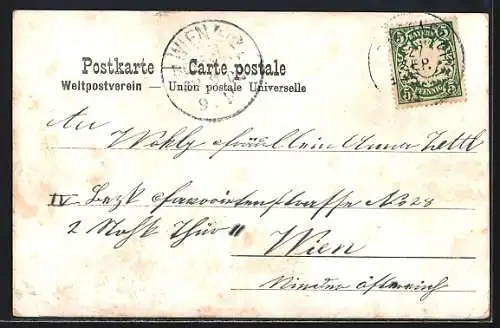 WIEN
Postkarte Carte postale
Weltpostverein — Union postale Universelle
BAYERN
5 5
PFENNIG
An Wohlg Fräullein Anna Zettl
IV Bezk Favoritenstrasse No 28
2 Stock Thür 11
Wien
Nieder österreich